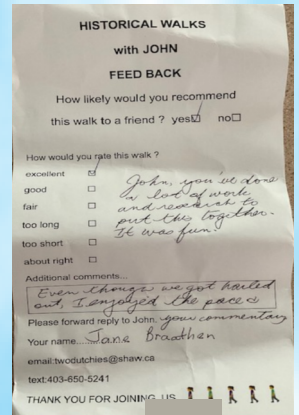 HISTORICAL WALKS
with JOHN
FEED BACK
How likely would you recommend
this walk to a friend ? yes☑ no☐
How would you rate this walk ?
excellent ☑
good ☐
fair ☐
too long ☐
too short ☐
about right ☐
John, you've done
a lot of work
and research to
put this together.
It was fun.
Additional comments...
Even though we got hailed
out, I enjoyed the pace &
your commentary
Please forward reply to John,
Your name....Jane Braathen
email:twodutchies@shaw.ca
text:403-650-5241
THANK YOU FOR JOINING US